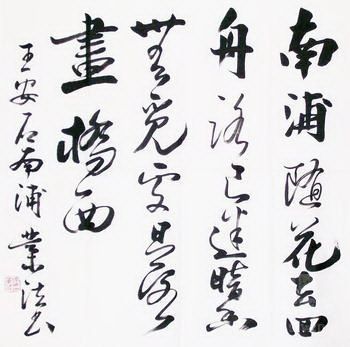 南浦隨花去回
舟路已迷暗香
無覓處日落
畫橋西
王安石南浦 業法书